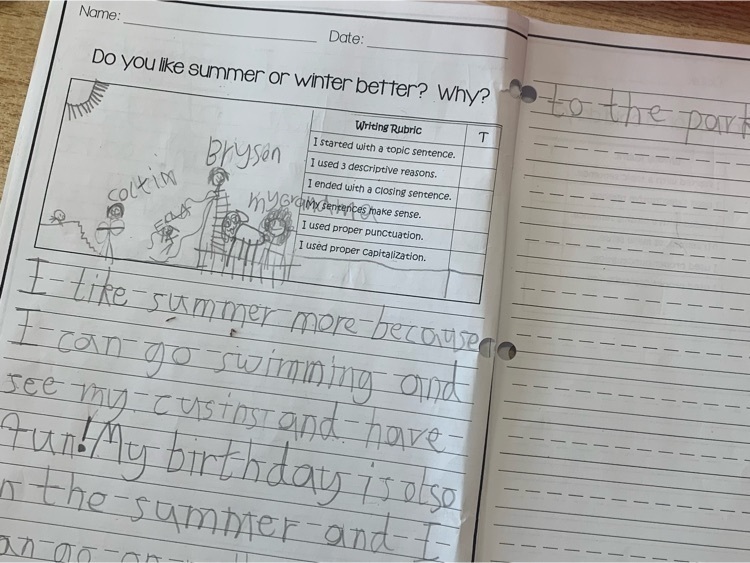 Name:
Date:
Do you like summer or winter better? Why?
Writing Rubric
T
I started with a topic sentence.
I used 3 descriptive reasons.
I ended with a closing sentence.
My sentences make sense.
I used proper punctuation.
I used proper capitalization.
Bryson
coltin
my
I like summer more because
I can go swimming and
see my cusins and have
fun! My birthday is also
n the summer and I
an go on
to the park